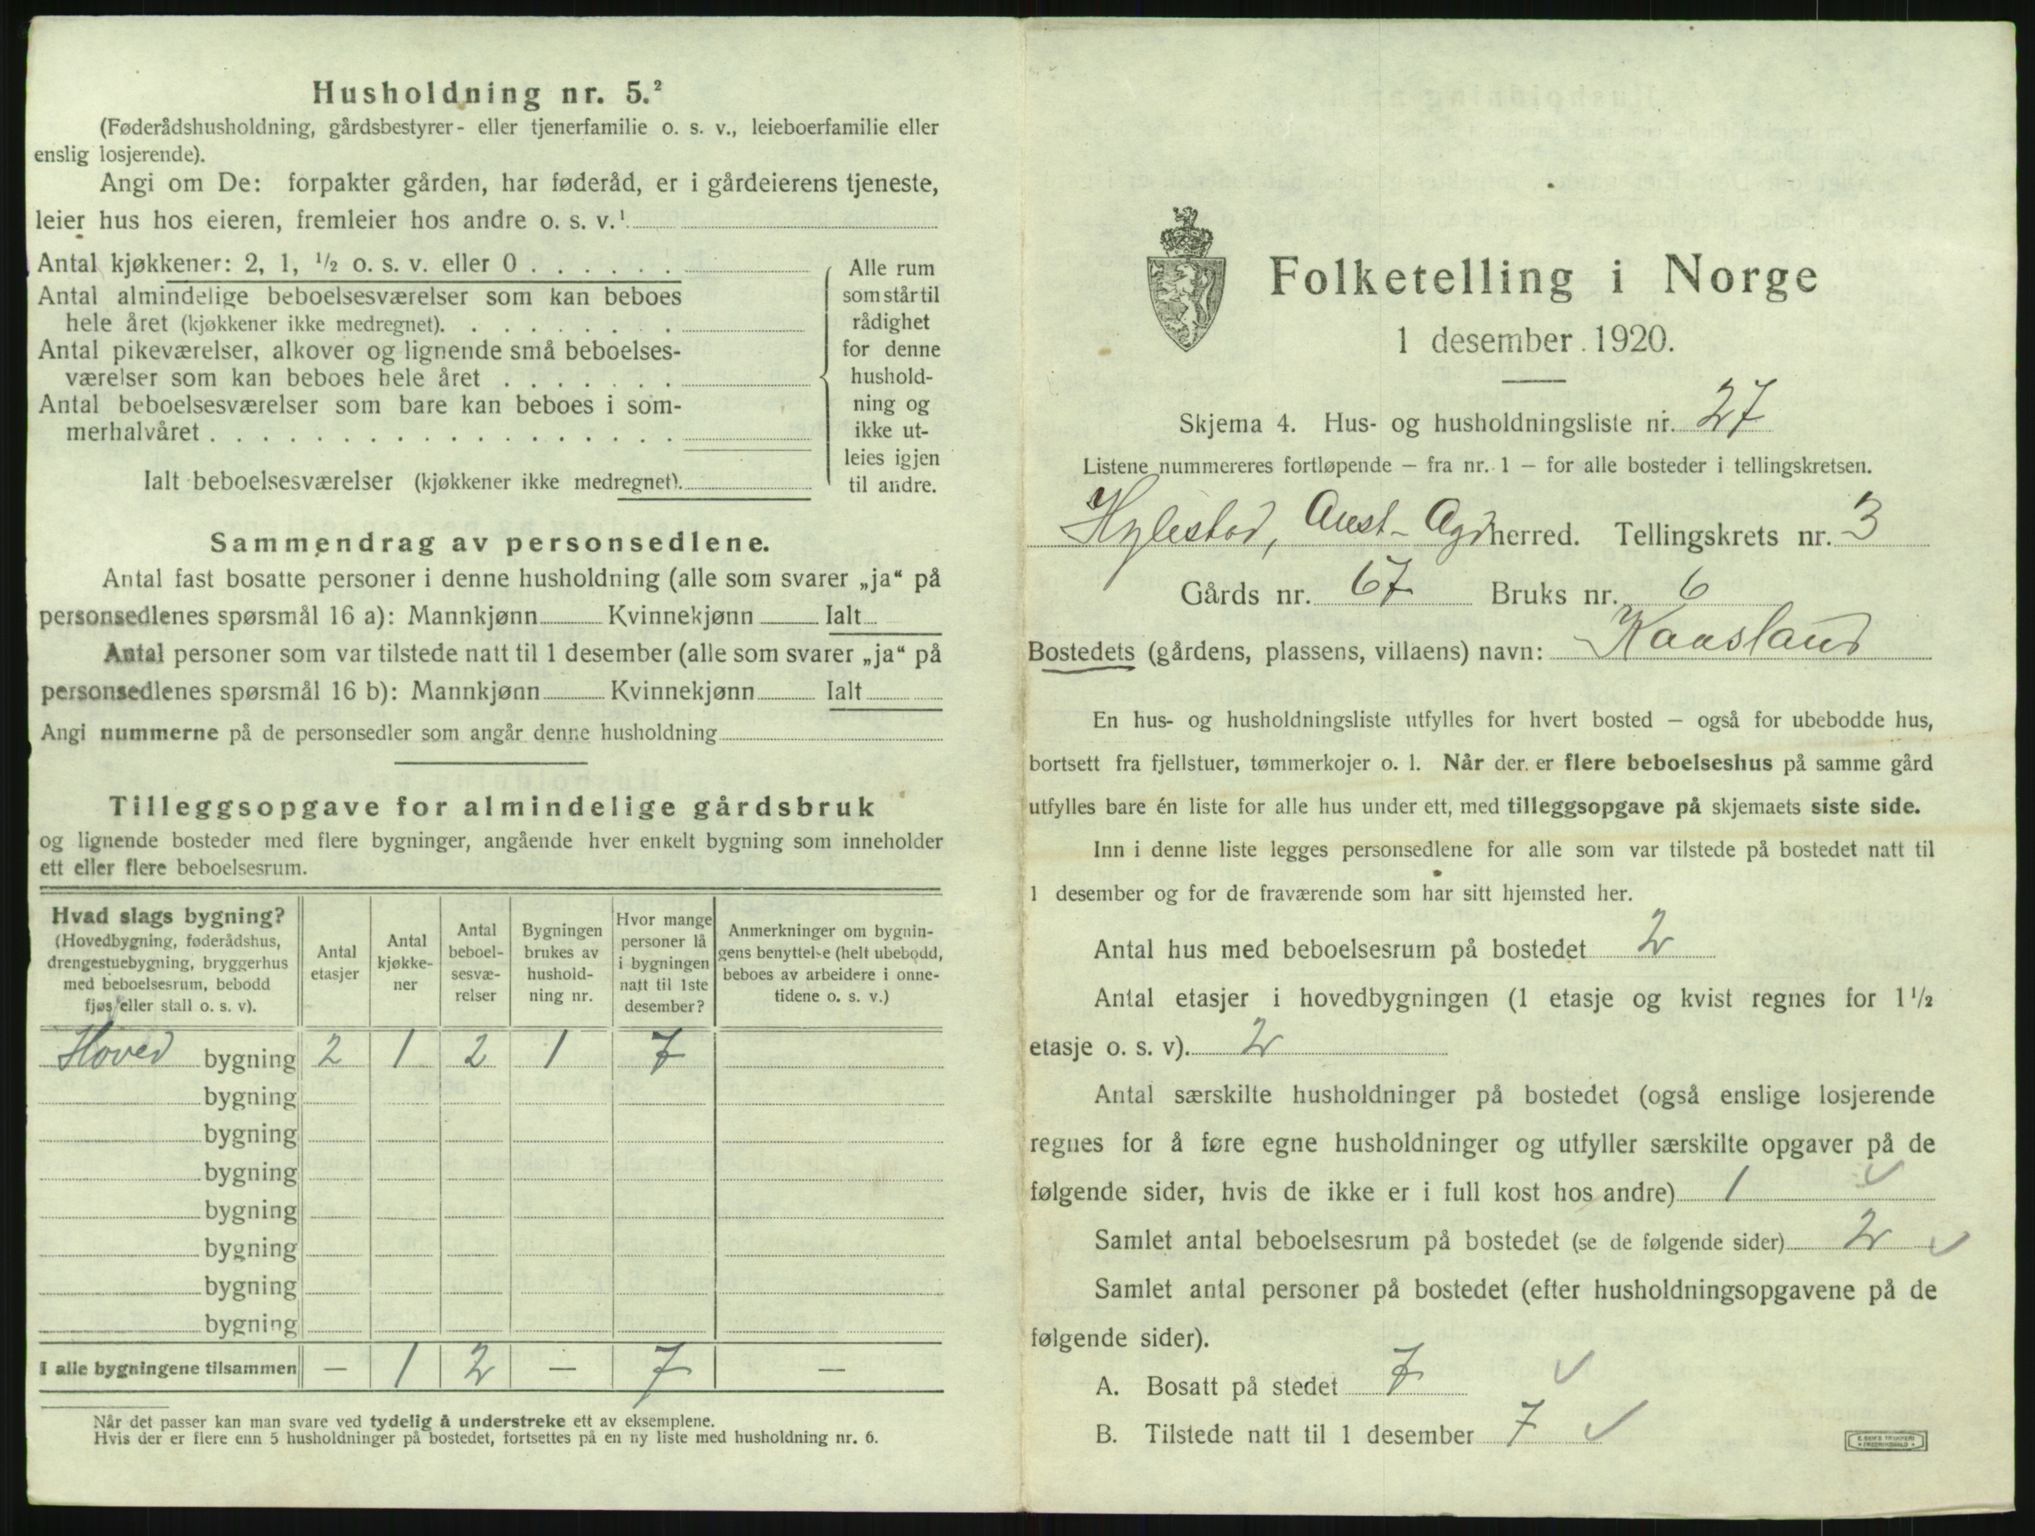 Husholdning nr. 5.²
(Føderådshusholdning, gårdsbestyrer- eller tjenerfamilie o. s. v., leieboerfamilie eller
enslig losjerende).
Angi om De: forpakter gården, har føderåd, er i gårdeierens tjeneste,
leier hus hos eieren, fremleier hos andre o. s. v.¹
Antal kjøkkener: 2, 1, ½ o. s. v. eller 0 . . . . . .
Antal almindelige beboelsesværelser som kan beboes
hele året (kjøkkener ikke medregnet). . . . . . . . .
Antal pikeværelser, alkover og lignende små beboelses-
værelser som kan beboes hele året . . . . . . .
Antal beboelsesværelser som bare kan beboes i som-
merhalvåret . . . . . . . . . . . . . . . . . .
Ialt beboelsesværelser (kjøkkener ikke medregnet).
Alle rum
som står til
rådighet
for denne
hushold-
ning og
ikke ut-
leies igjen
til andre.
Sammendrag av personsedlene.
Antal fast bosatte personer i denne husholdning (alle som svarer „ja“ på
personsedlenes spørsmål 16 a): Mannkjønn Kvinnekjønn Ialt
Antal personer som var tilstede natt til 1 desember (alle som svarer „ja“ på
personsedlenes spørsmål 16 b): Mannkjønn Kvinnekjønn Ialt
Angi nummerne på de personsedler som angår denne husholdning
Tilleggsopgave for almindelige gårdsbruk
og lignende bosteder med flere bygninger, angående hver enkelt bygning som inneholder
ett eller flere beboelsesrum.
Hvad slags bygning?
(Hovedbygning, føderådshus,
drengestuebygning, bryggerhus
med beboelsesrum, bebodd
fjøs eller stall o. s. v).
Antal
etasjer
Antal
kjøkke-
ner
Antal
beboel-
sesvæ-
relser
Bygningen
brukes av
hushold-
ning nr.
Hvor mange
personer lå
i bygningen
natt til 1ste
desember?
Anmerkninger om bygnin-
gens benyttelse (helt ubebodd,
beboes av arbeidere i onne-
tidene o. s. v.)
Hoved bygning 2 1 2 1 7
bygning
bygning
bygning
bygning
bygning
bygning
bygning
I alle bygningene tilsammen — 1 2 — 7 —
Når det passer kan man svare ved tydelig å understreke ett av eksemplene.
Hvis der er flere enn 5 husholdninger på bostedet, fortsettes på en ny liste med husholdning nr. 6.
Folketelling i Norge
1 desember 1920.
Skjema 4. Hus- og husholdningsliste nr. 27
Listene nummereres fortløpende — fra nr. 1 — for alle bosteder i tellingskretsen.
Hylestad, Aust-Agd herred. Tellingskrets nr. 3
Gårds nr. 67 Bruks nr. 6
Bostedets (gårdens, plassens, villaens) navn: Kaasland
En hus- og husholdningsliste utfylles for hvert bosted — også for ubebodde hus,
bortsett fra fjellstuer, tømmerkojer o. l. Når der er flere beboelseshus på samme gård
utfylles bare én liste for alle hus under ett, med tilleggsopgave på skjemaets siste side.
Inn i denne liste legges personsedlene for alle som var tilstede på bostedet natt til
1 desember og for de fraværende som har sitt hjemsted her.
Antal hus med beboelsesrum på bostedet 2
Antal etasjer i hovedbygningen (1 etasje og kvist regnes for 1½
etasje o. s. v). 2
Antal særskilte husholdninger på bostedet (også enslige losjerende
regnes for å føre egne husholdninger og utfyller særskilte opgaver på de
følgende sider, hvis de ikke er i full kost hos andre) 1 ✓
Samlet antal beboelsesrum på bostedet (se de følgende sider) 2 ✓
Samlet antal personer på bostedet (efter husholdningsopgavene på de
følgende sider).
A. Bosatt på stedet 7 ✓
B. Tilstede natt til 1 desember 7 ✓